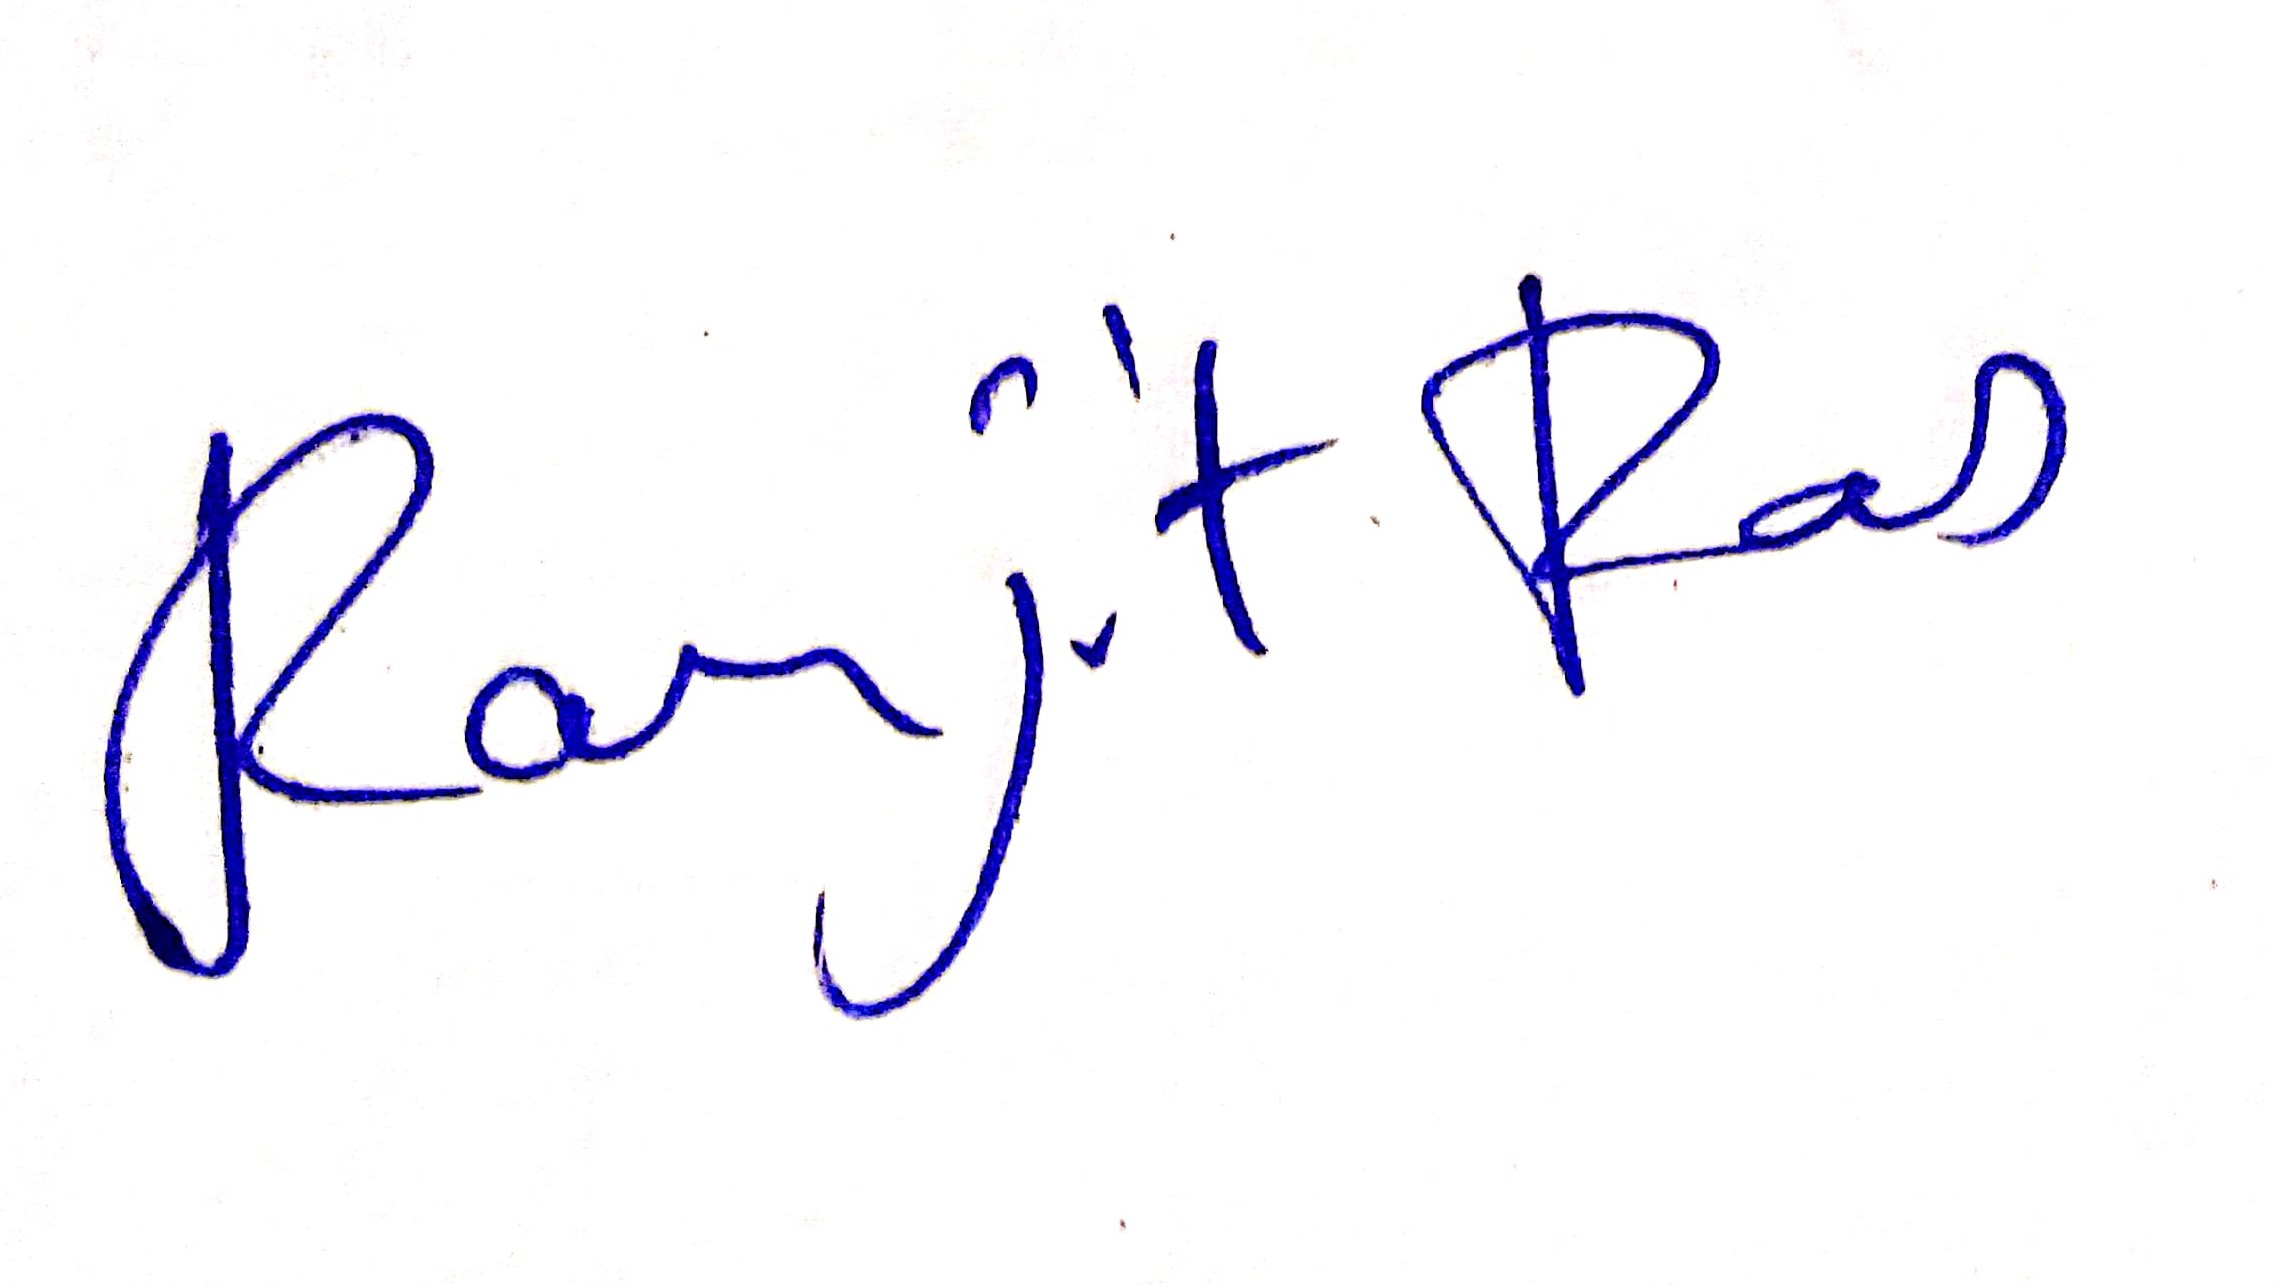 Ranjit Ras